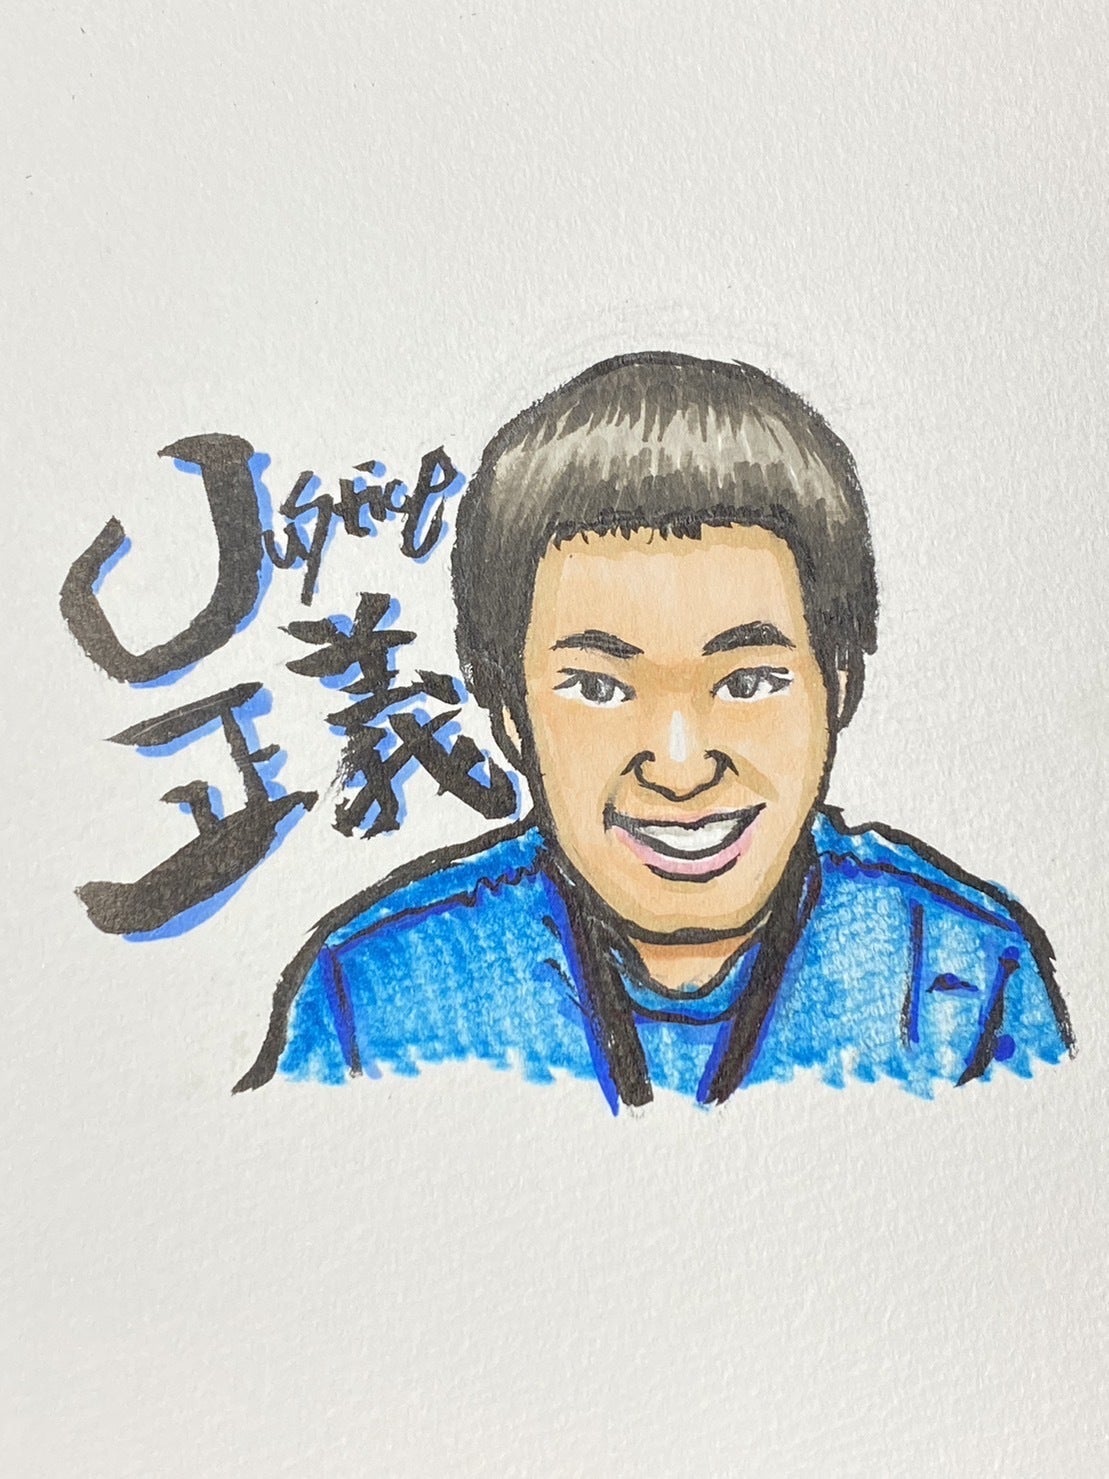 Justice
正義